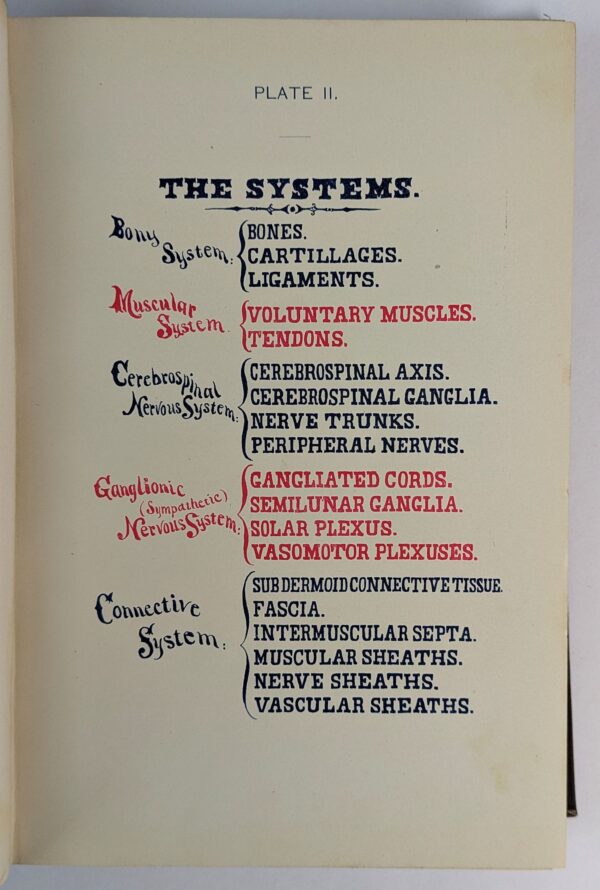 PLATE II.
THE SYSTEMS.
Bony System:
BONES.
CARTILLAGES.
LIGAMENTS.
Muscular System.
VOLUNTARY MUSCLES.
TENDONS.
Cerebrospinal Nervous System:
CEREBROSPINAL AXIS.
CEREBROSPINAL GANGLIA.
NERVE TRUNKS.
PERIPHERAL NERVES.
Ganglionic
(Sympathetic)
Nervous System:
GANGLIATED CORDS.
SEMILUNAR GANGLIA.
SOLAR PLEXUS.
VASOMOTOR PLEXUSES.
Connective System:
SUBDERMOID CONNECTIVE TISSUE.
FASCIA.
INTERMUSCULAR SEPTA.
MUSCULAR SHEATHS.
NERVE SHEATHS.
VASCULAR SHEATHS.